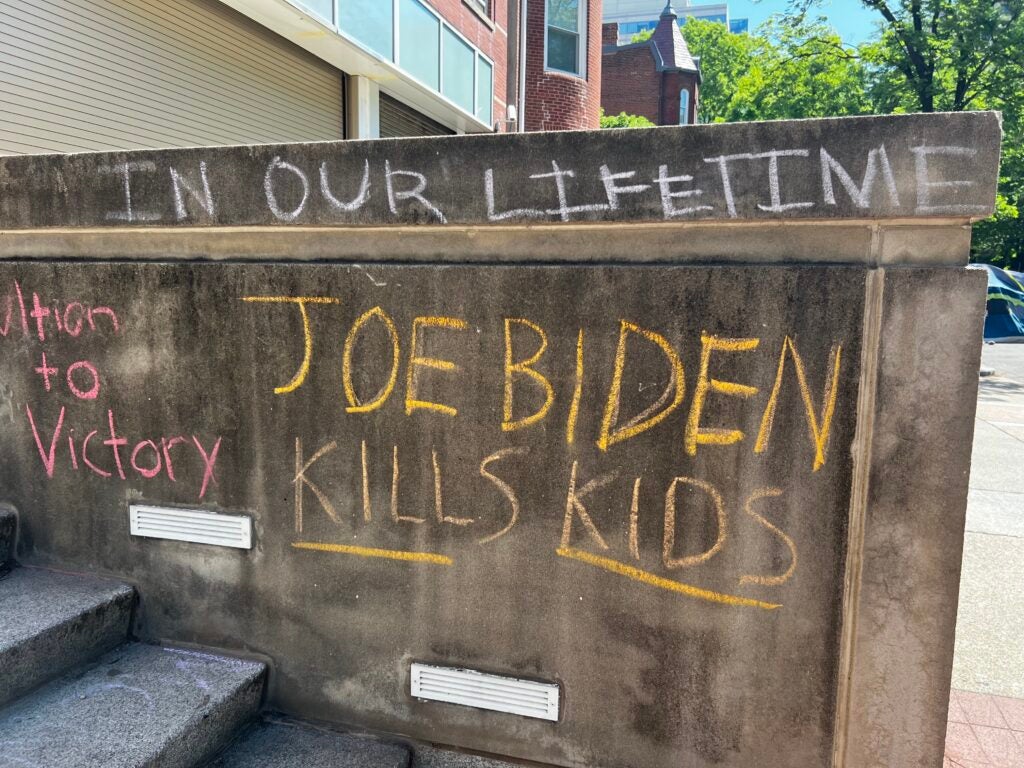 IN OUR LIFETIME
to
Victory
JOE BIDEN
KILLS KIDS